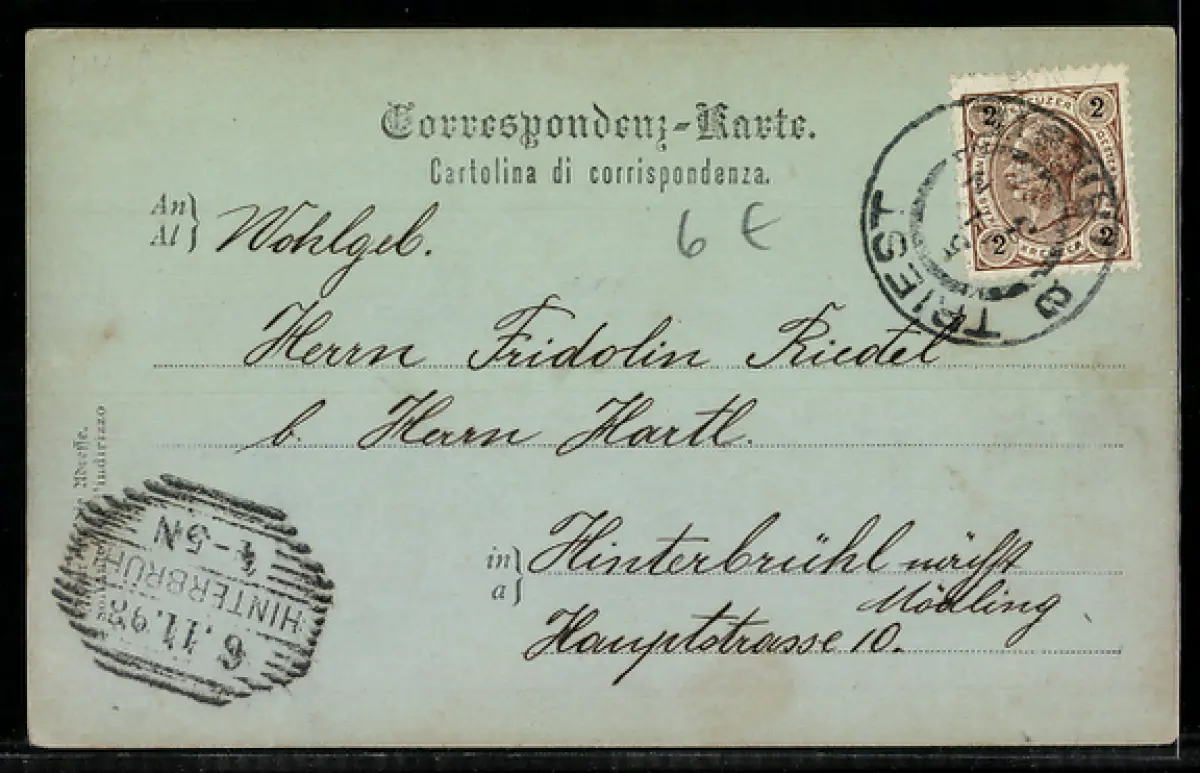 Correspondenz-Karte.
Cartolina di corrispondenza.
An
Al
Wohlgeb.
6 €
Herrn Fridolin Riedel
b. Herrn Hartl.
in
a
Hinterbrühl nächst
Mödling
Hauptstrasse 10.
2 2
2 2
KREUZER
TRIEST
Adresse.
indirizzo
6.11.98
HINTERBRÜH
4-5N